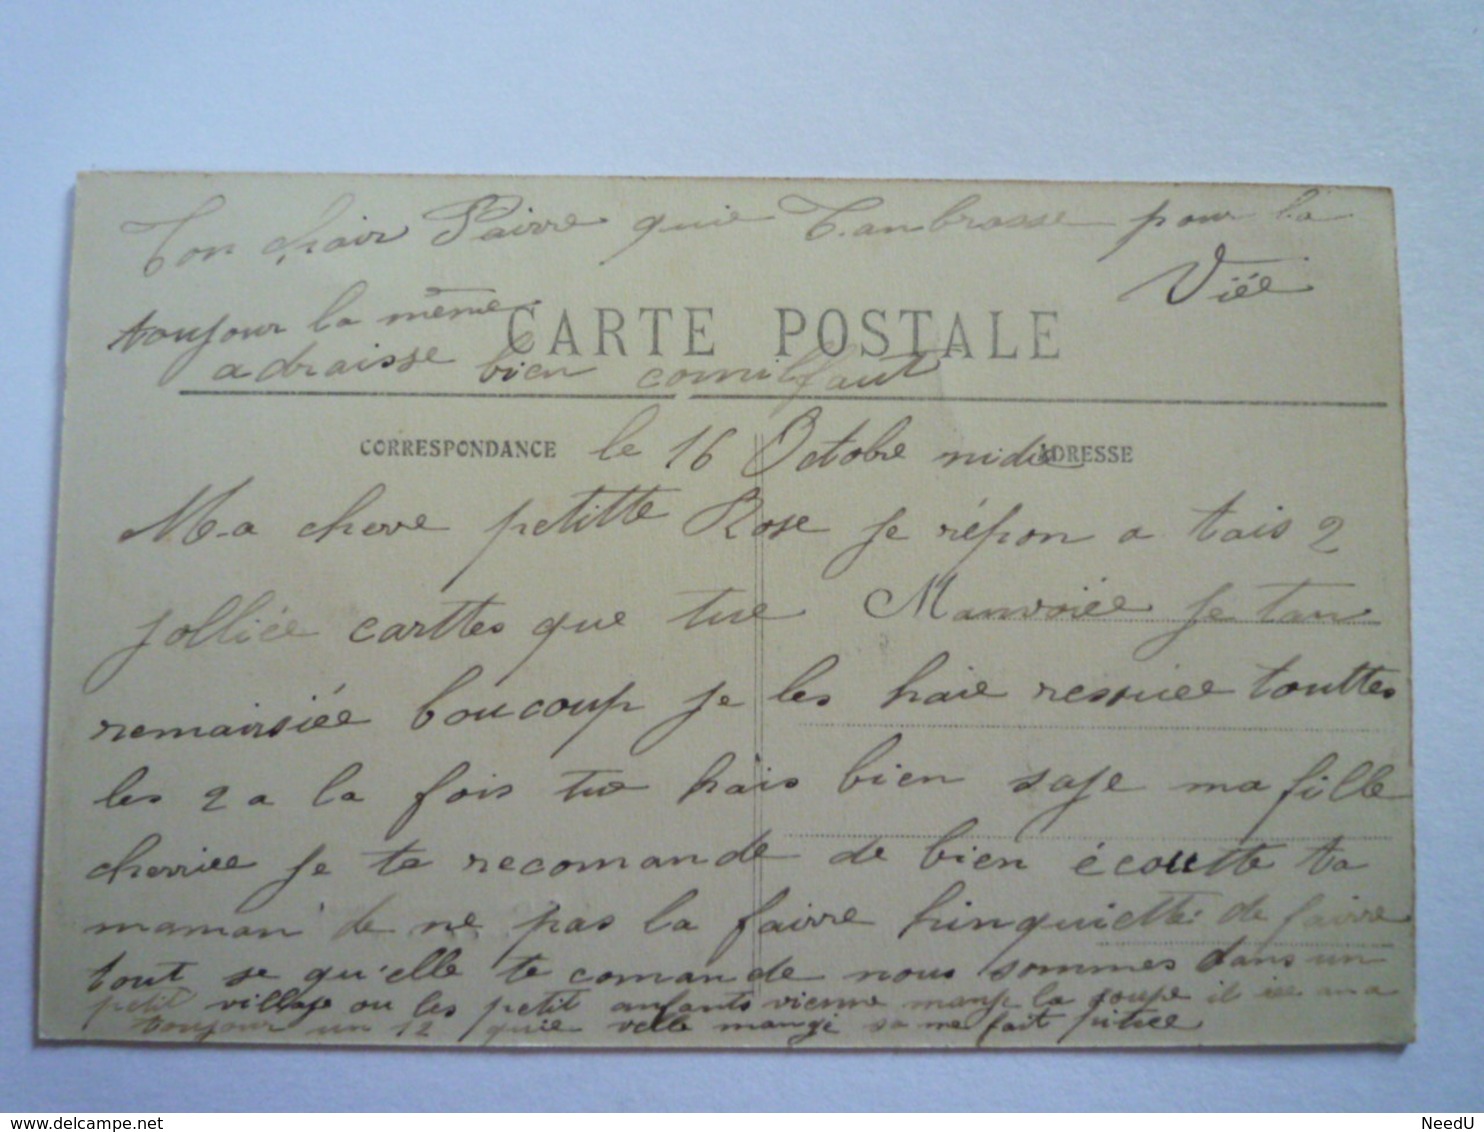 Ton chair Paire quie T.anbrasse pour la
Viée
toujour la même
CARTE POSTALE
adraisse bien comilfaut
CORRESPONDANCE le 16 Octobre midie ADRESSE
Ma chere petitte Rose je répon a tais 2
jolliée carttes que tue Manvoiée je tan
remairsiée boucoup je les haie ressuiee touttes
les 2 a la fois tue hais bien saje ma fille
cherriee je te recomande de bien écoutte ta
maman de ne pas la fairre hinquiette: de fairre
tout se qu'elle te comande nous sommes dans un
petit village ou les petit anfants vienne manje la soupe il iee an a
toujour un 12 quie velle mangé sa me fait pitiee
NeedU